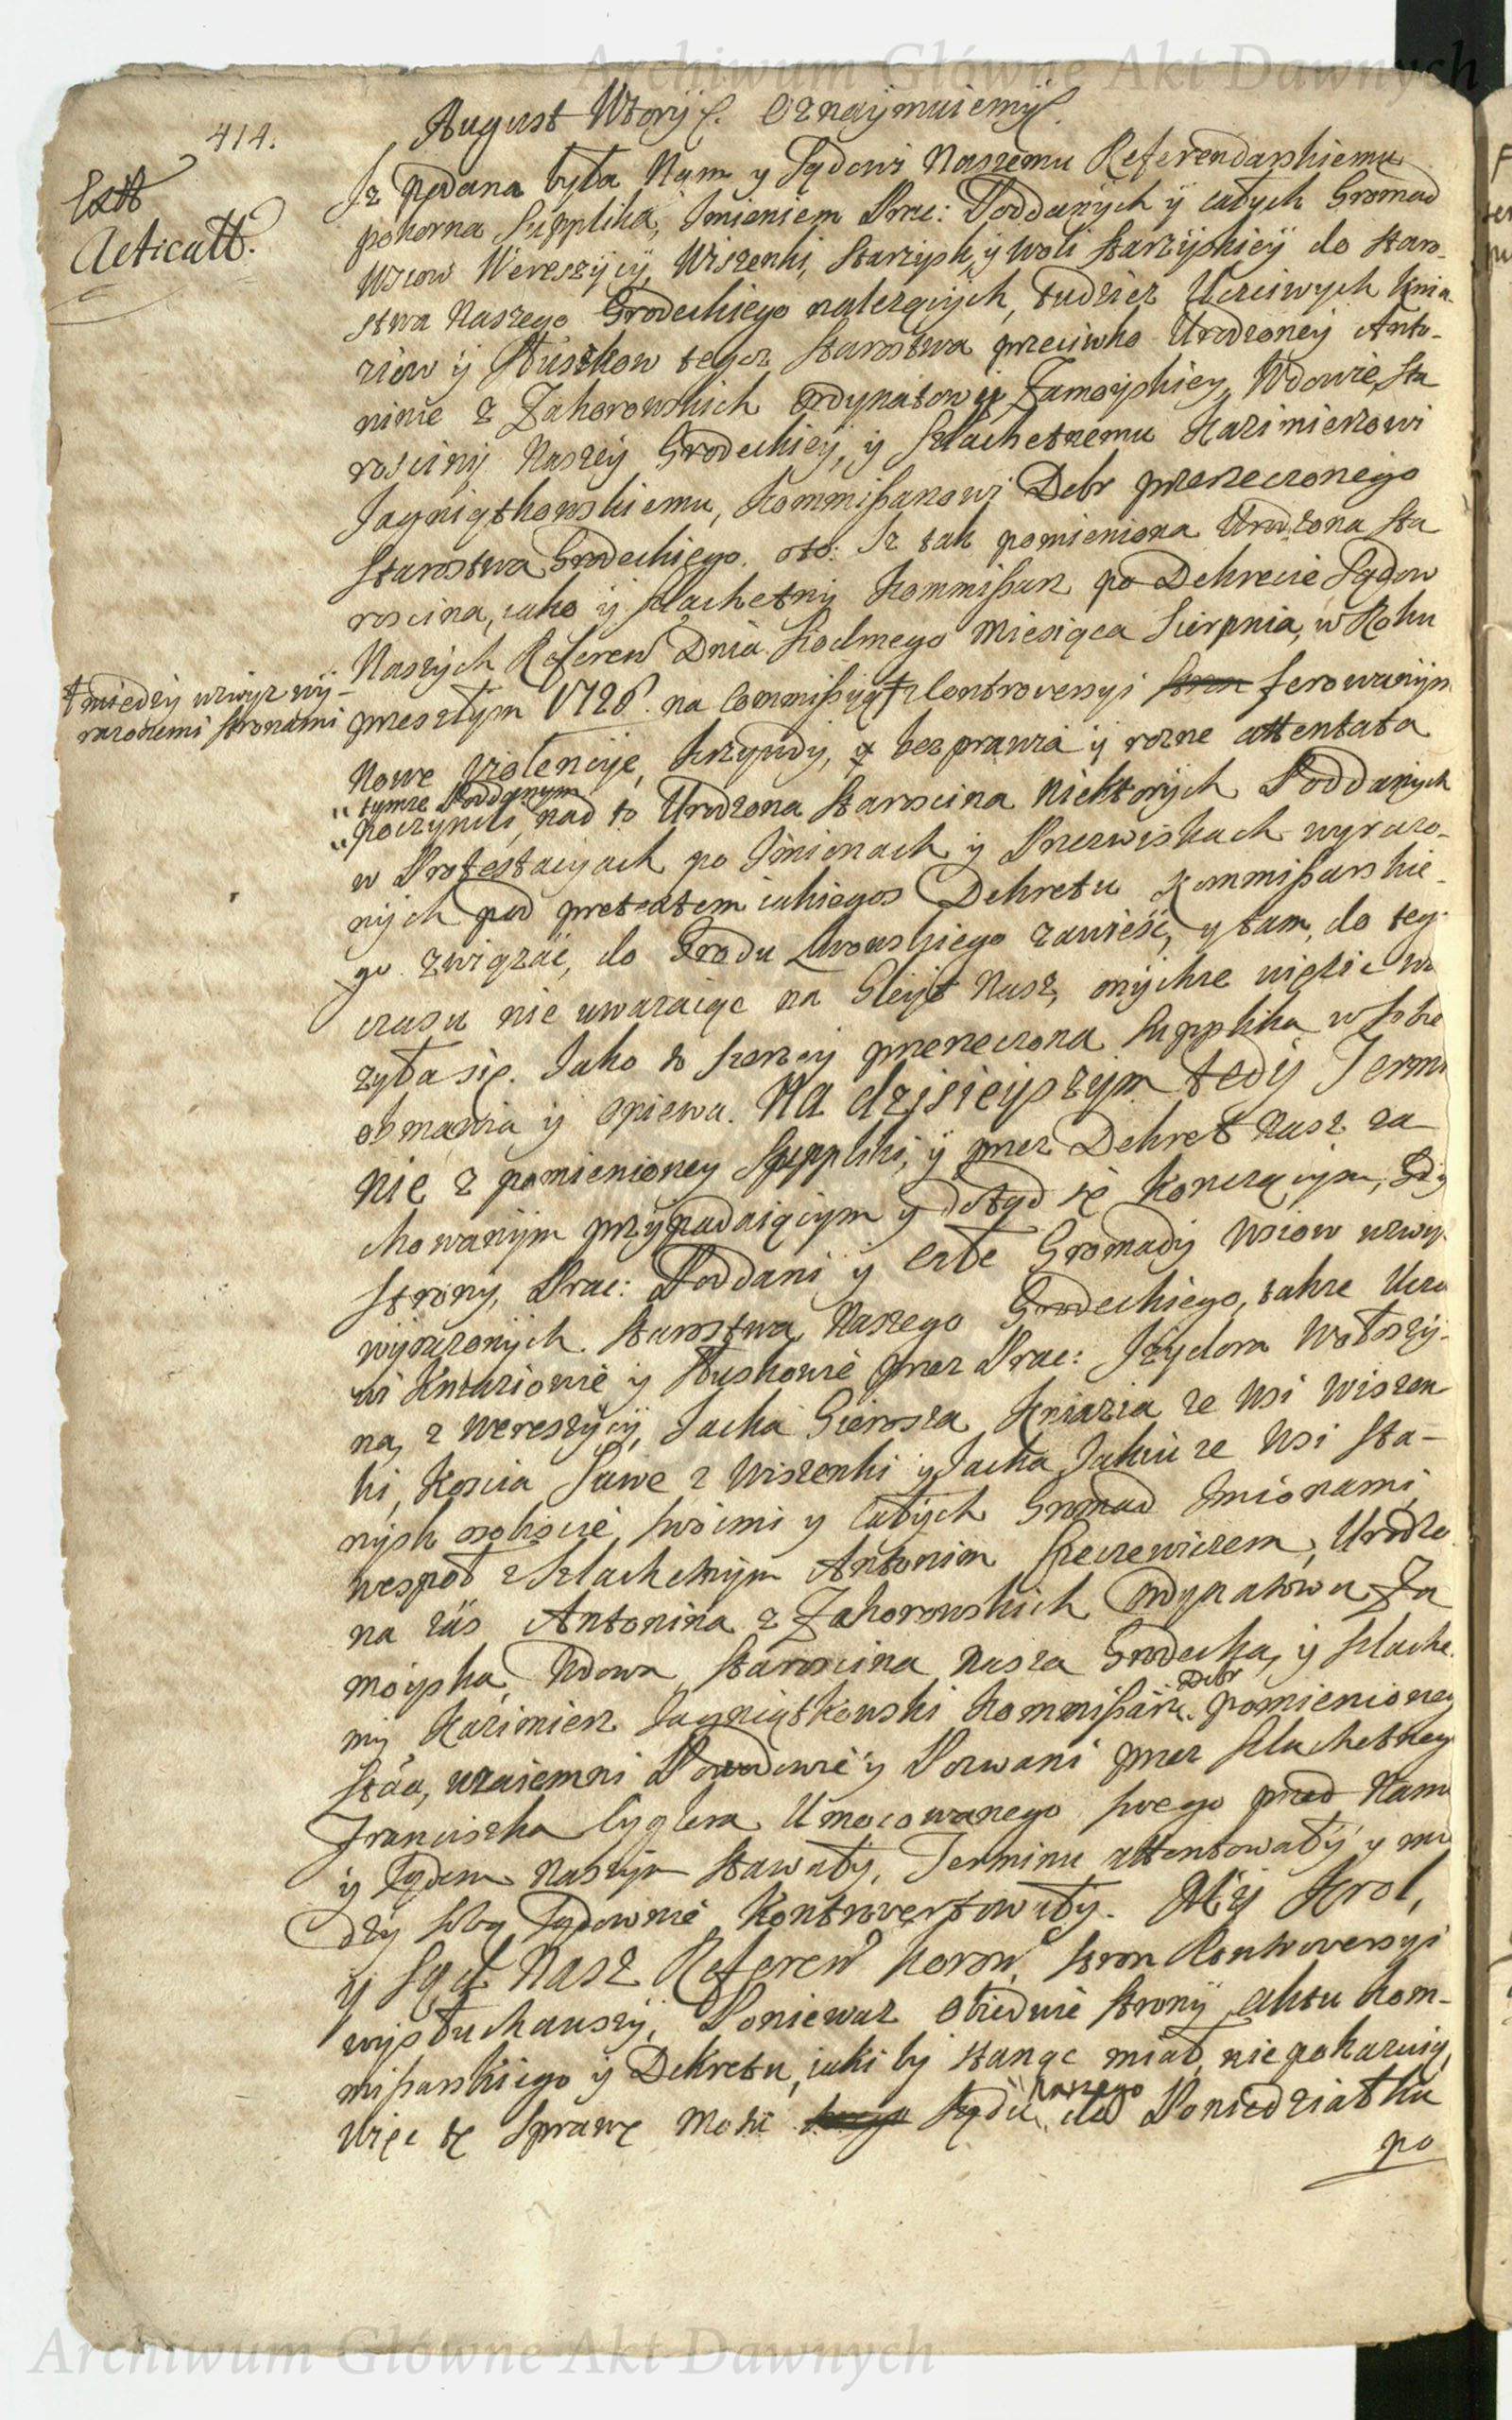 Archiwum Główne Akt Dawnych
414.
August Wtory etc. Oznaymuiemy etc.
Extt
Acticatt.
Iz podana była Nam y Sądowi Naszemu Referendarskiemu
pokorna Supplika, Imieniem Prac: Poddanych y całych Gromad
Wsiow Wereszycy, Wiszenki, Starzysk, y Woli Starzyskiey do Staro-
stwa Naszego Grodeckiego należących, tudzież Uczciwych Knia-
ziow y Służkow tegoż Starostwa przeciwko Urodzoney Anto-
ninie z Zahorowskich Ordynatowey Zamoyskiey, Wdowie, Sta
rościny Naszey Grodeckiey, y Szlachetnemu Kazimierzowi
Jagniątkowskiemu, Kommissarzowi Dobr przerzeczonego
Starostwa Grodeckiego. oto: Iż tak pomieniona Urodzona Sta
rościna, iako y Szlachetny Kommissarz po Dekrecie Sądow
Naszych Referen Dnia Siodmego Miesiąca Sierpnia, w Roku
przeszłym 1726. na Commissyą z Controwersyi stron ferowanym
między wzwyż wy-
rażonemi stronami
Nowe violencye, krzywdy, y bezprawia y rozne attentata
tymże Poddanym
poczynili, nad to Urodzona Starościna Niektorych Poddanych
w Protestacyach po Imionach y Przezwiskach wyrażo-
nych pod pretextem iakiegoś Dekretu Kommissarskie-
go związać, do Grodu Lwowskiego zawieść, y tam, do tego
czasu nie uważaiąc na Gleyt Nasz, onychże więzić wa
żyła się. Iako to szerzey przerzeczona Supplika w sobie
obmawia y opiewa. Na dzisieyszym tedy Termi
nie z pomienioney Suppliki, y przez Dekret Nasz za
chowanym przypadaiącym y dotąd się kończącym, Gdy
Strony, Prac: Poddani y Całe Gromady Wsiow wzwyż
wyrażonych Starostwa Naszego Grodeckiego, także Uczci
wi Kniaziowie y Służkowie przez Prac: Izydora Wołoszy-
na, z Wereszycy, Iacka Gierosza Kniazia ze Wsi Wiszen-
ki, Koscia Sawe z Wiszenki y Iacka Iakiu ze Wsi Sta-
rzysk osobiście, swoimi y Całych Gromad Imionami,
wespoł z Szlachetnym Antonim Szczewiczem, Urodzo
na zaś Antonina z Zahorowskich Ordynatowa Za
moyska, Wdowa, Starościna Nasza Grodecka, y Szlache
tny Kazimierz Jagniątkowski Kommissarz Dobr pomienioney
Stwa, wzaiemni Powodowie y Pozwani przez Szlachetnego
Franciszka Cyglera Umocowanego swego przed Nami
y Sądem Naszym Stawały, Terminu attentowały y mie
dzy sobą Sądownie Kontrowertowały. My Krol,
y Sąd Nasz Referen Koron, stron Kontrowersyi
wysłuchawszy, Ponieważ Obiedwie Strony aktu Kom-
missarskiego y Dekretu, iaki by stanąć miał, nie pokazuią,
Więc tę Sprawę Mocą Sądu Naszego do Poniedziałku
po
Archiwum Główne Akt Dawnych